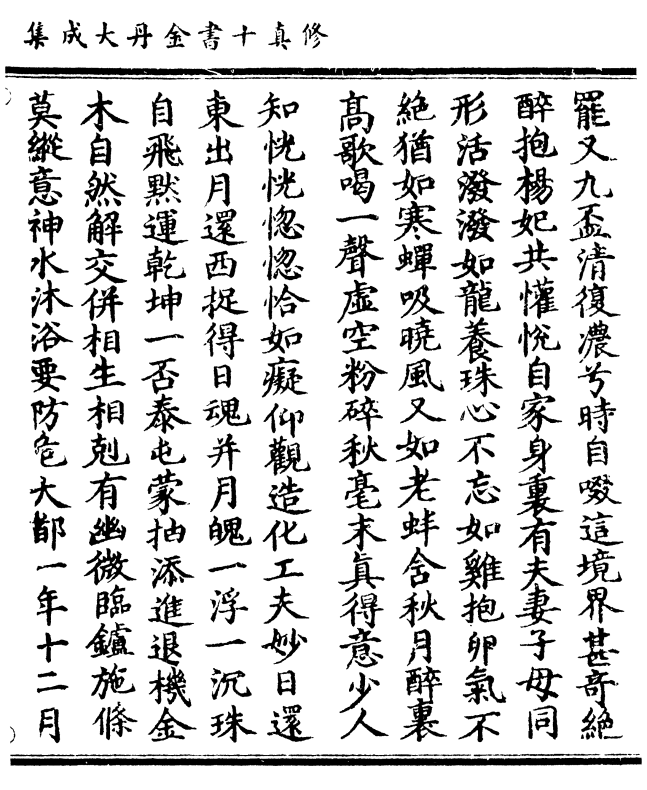 修真十書金丹大成集
罷又九盃清復濃兮時自啜這境界甚竒絶
醉抱楊妃共懽悅自家身裏有夫妻子母同
形活潑潑如龍養珠心不忘如雞抱卵氣不
絶猶如寒蟬吸曉風又如老蚌含秋月醉裏
髙歌喝一聲虚空粉碎秋毫末真得意少人
知恍恍惚惚恰如癡仰觀造化工夫妙日還
東出月還西捉得日魂并月魄一浮一沉珠
自飛黙運乾坤一否泰屯蒙抽添進退機金
木自然解交併相生相剋有幽微臨鑪施條
莫縱意神水沐浴要防危大都一年十二月